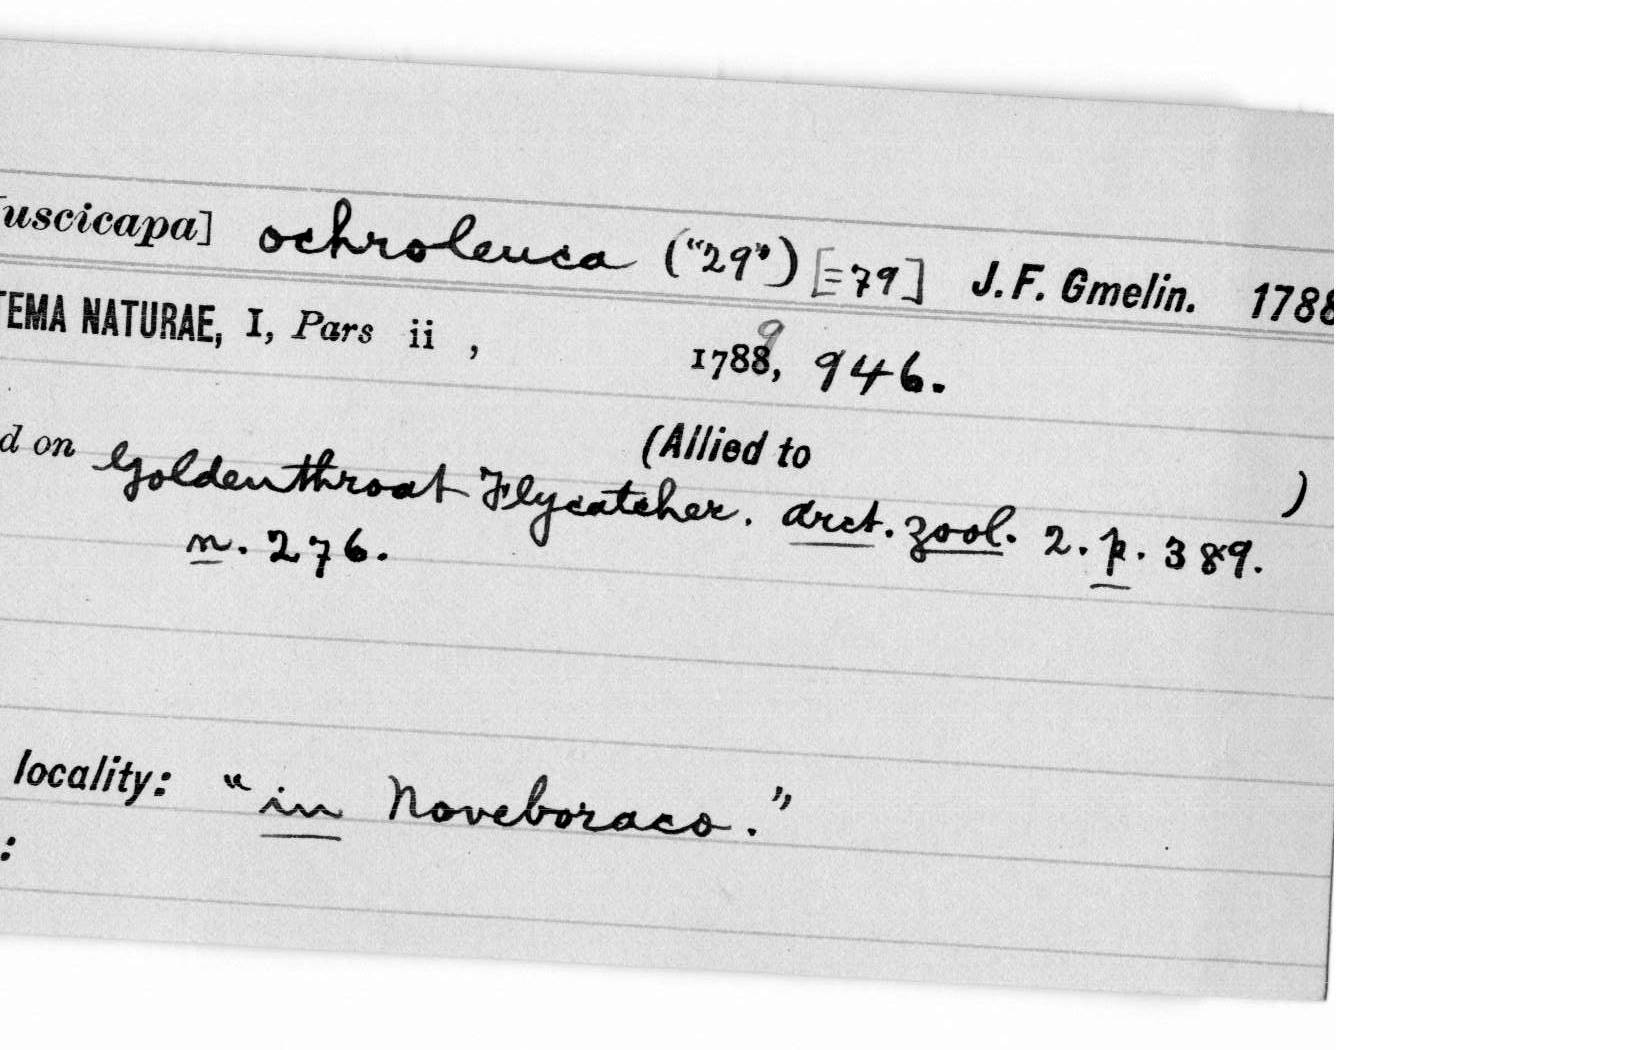 uscicapa] ochroleuca ("29") [=79] J. F. Gmelin. 1788
TEMA NATURAE, I, Pars ii , 1788, 9 946.
(Allied to )
d on Goldenthroat Flycatcher. Arct. Zool. 2. p. 389.
n. 276.
locality: "in Noveboraco."
: